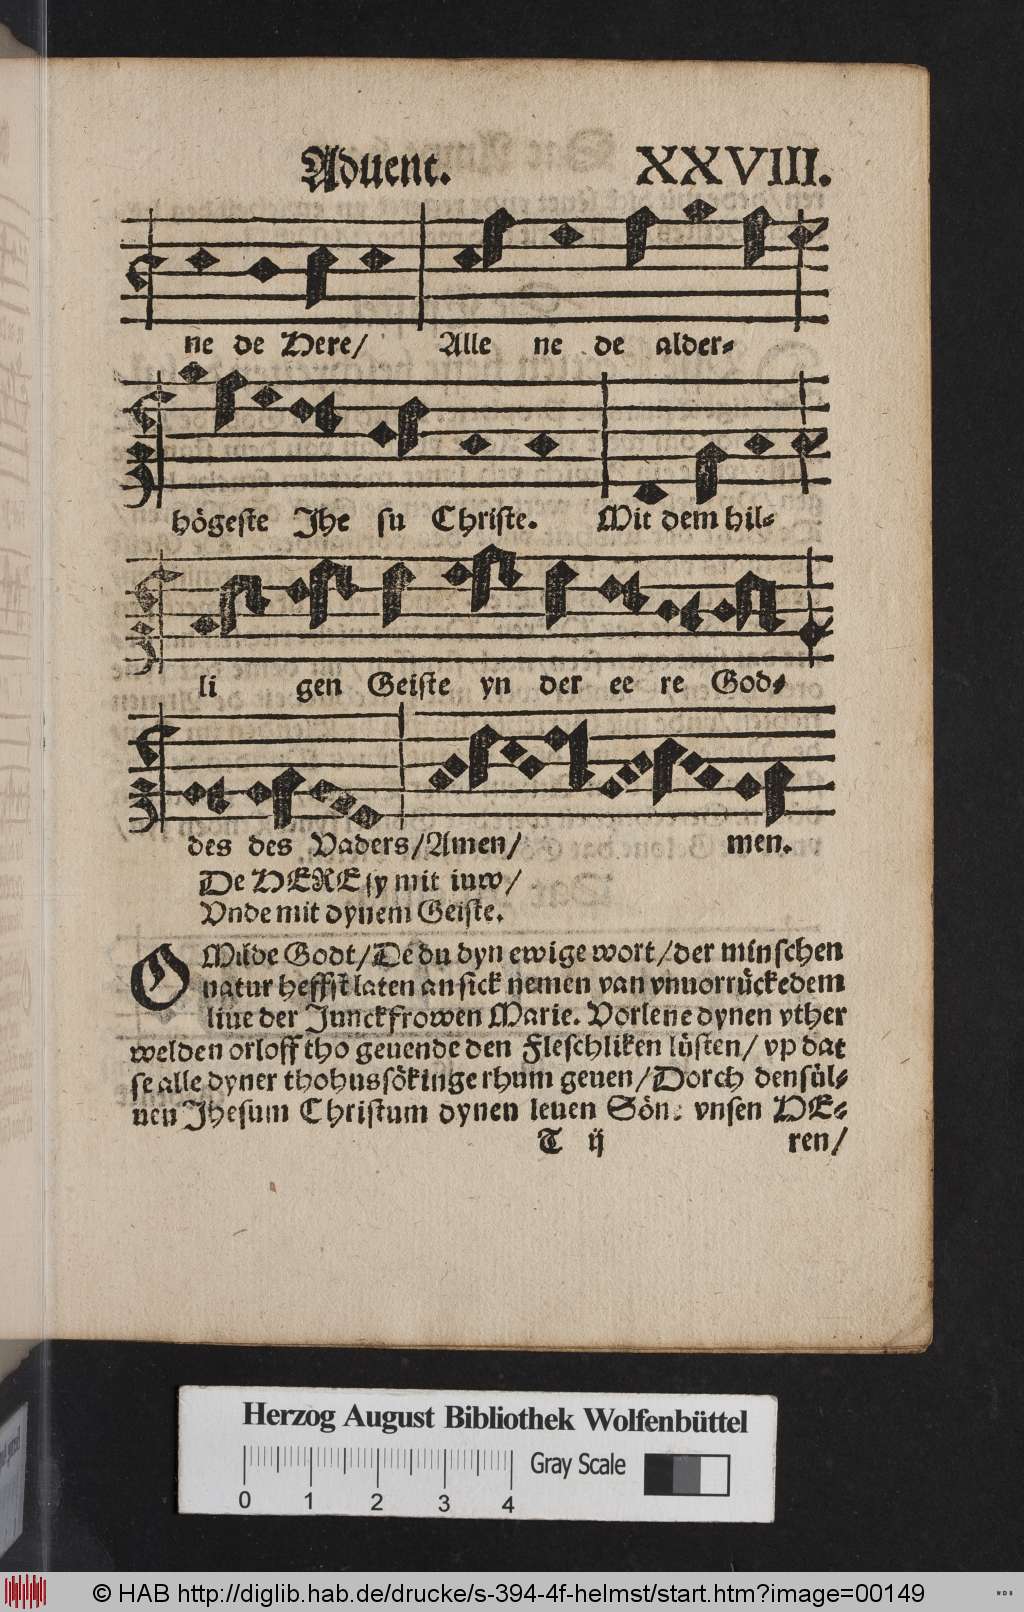 Aduent. XXVIII.
ne de Here/ Alle ne de alder-
högeste Jhe su Christe. Mit dem hil-
li gen Geiste yn der ee re God-
des des Vaders/Amen/ men.
De HERE sy mit iuw/
Vnde mit dynem Geiste.
O Milde Godt/De du dyn ewige wort/der minschen
natur heffst laten an sick nemen van vnuorrückedem
liue der Junckfrowen Marie. Vorlene dynen vther
welden orloff tho geuende den Fleschliken lüsten/ vp dat
se alle dyner thohussökinge rhum geuen/Dorch densül-
uen Jhesum Christum dynen leuen Sön: vnsen HE-
T ij ren/
Herzog August Bibliothek Wolfenbüttel
Gray Scale
0 1 2 3 4
© HAB http://diglib.hab.de/drucke/s-394-4f-helmst/start.htm?image=00149